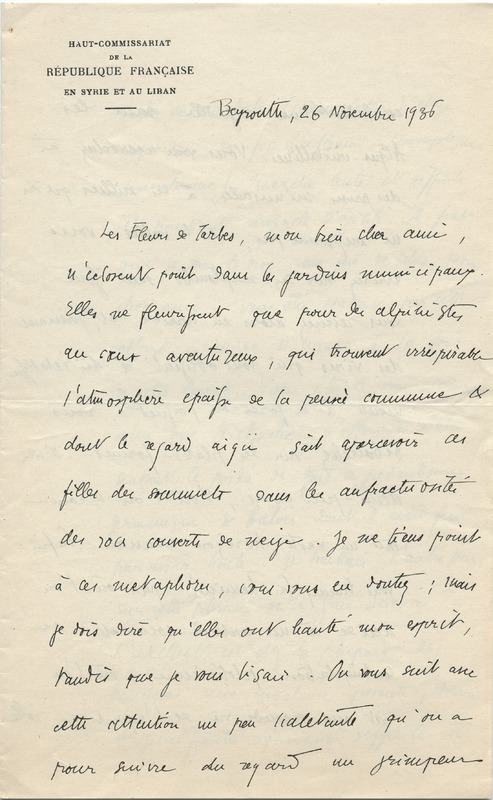 HAUT-COMMISSARIAT
DE LA
RÉPUBLIQUE FRANÇAISE
EN SYRIE ET AU LIBAN
Beyrouth, 26 Novembre 1936
Les Fleurs de Tarbes, mon bien cher ami,
n'éclosent point dans les jardins municipaux.
Elles ne fleurissent que pour des alpinistes
au cœur aventureux, qui trouvent irrespirable
l'atmosphère épaisse de la pensée commune &
dont le regard aigü sait apercevoir ces
filles des sommets dans les anfractuosités
des rocs couverts de neige. Je ne tiens point
à ces métaphores, vous vous en doutez ; mais
je dois dire qu'elles ont hanté mon esprit,
tandis que je vous lisais. On vous suit avec
cette attention un peu haletante qu'on a
pour suivre du regard un grimpeur